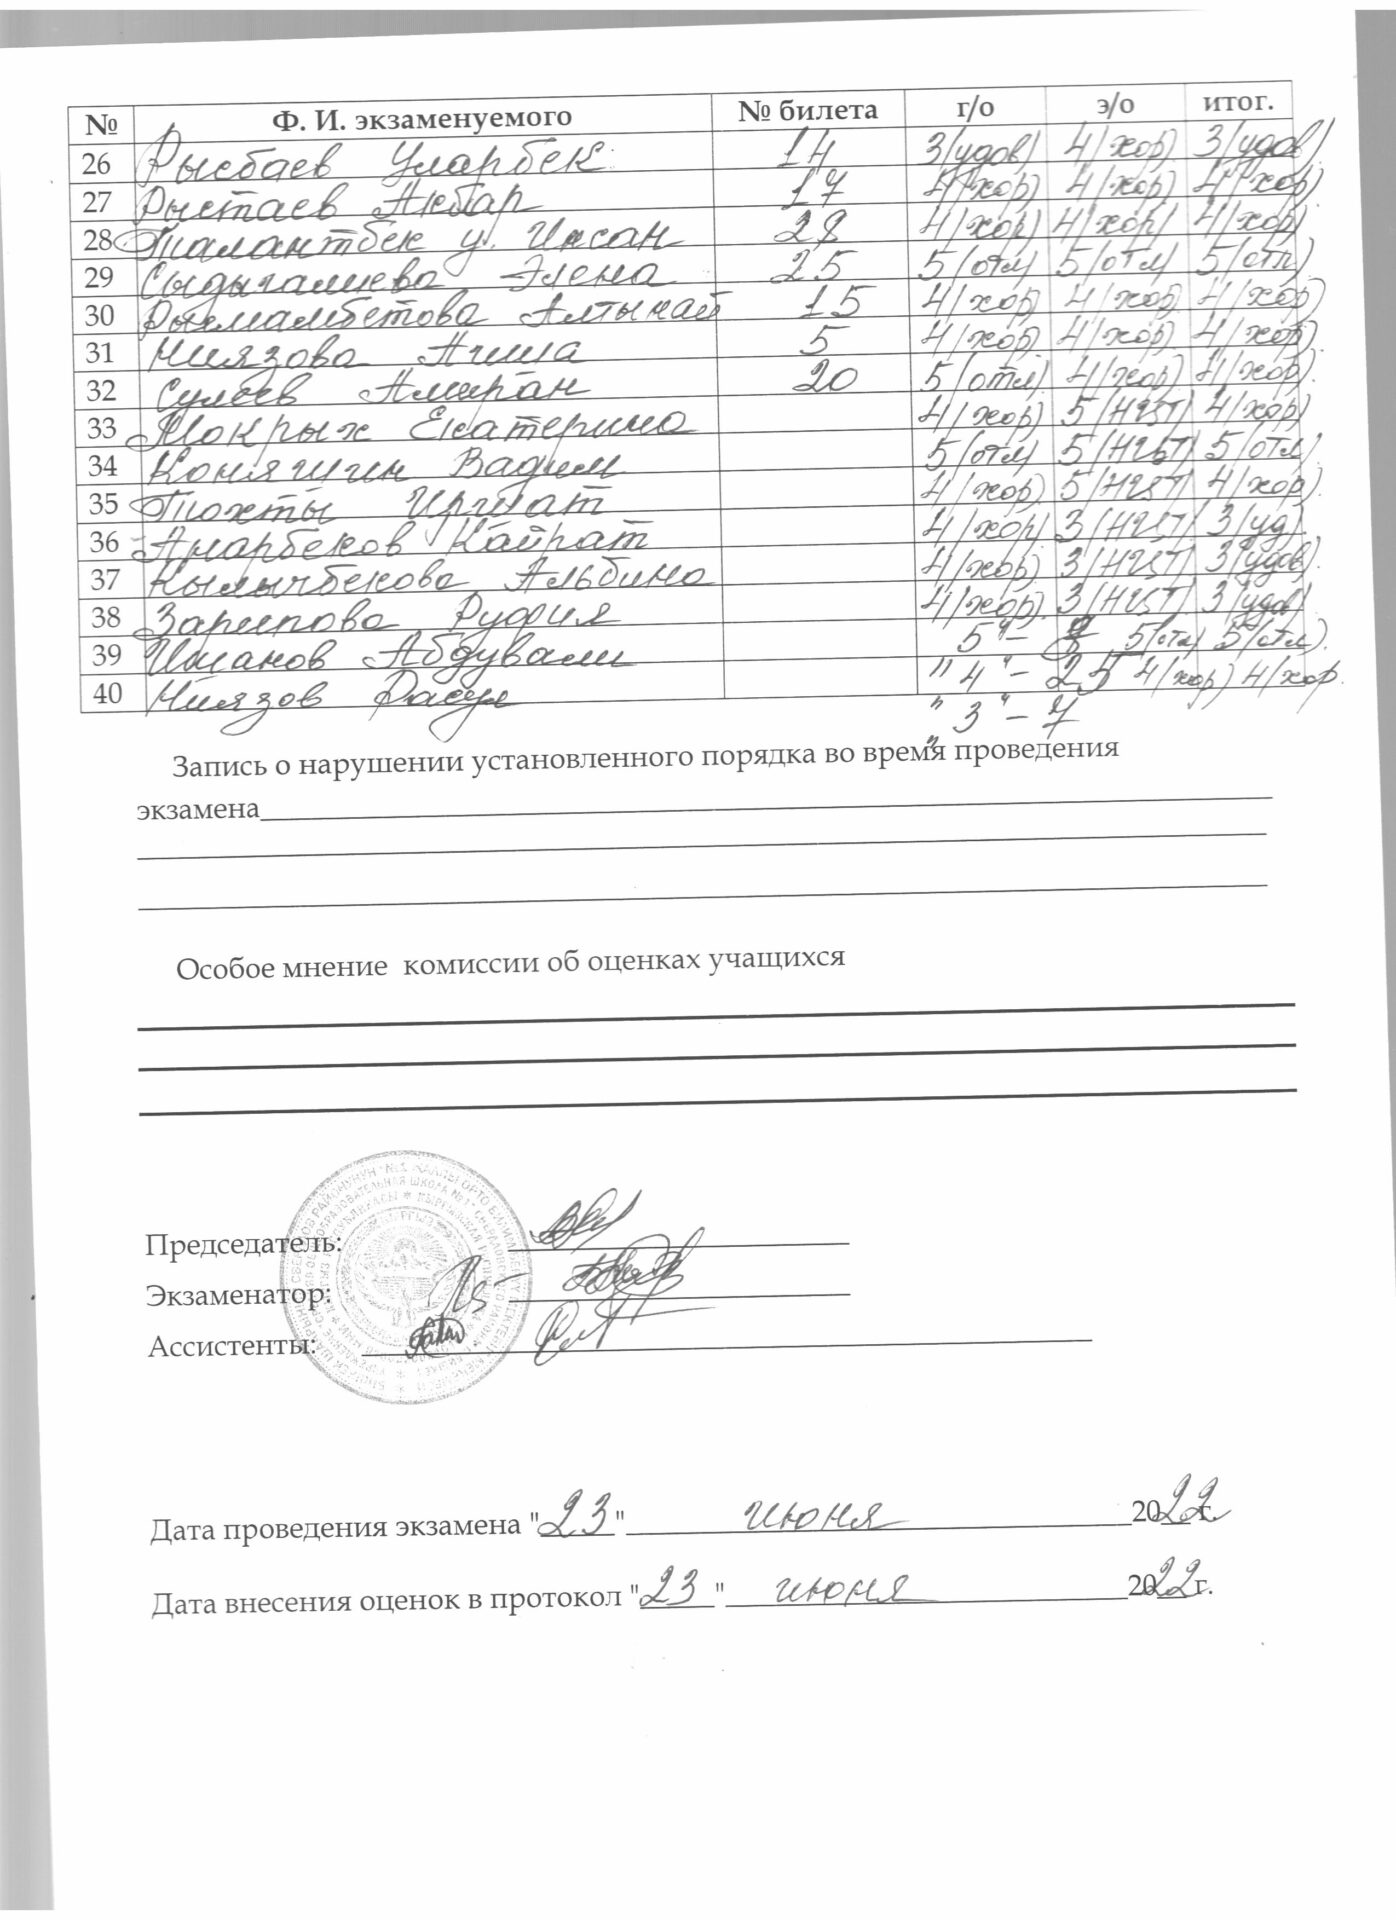 № Ф. И. экзаменуемого № билета г/о э/о итог.
26 Рысбаев Уларбек 14 3(удов) 4(хор) 3(удов)
27 Рыстаев Акбар 17 4(хор) 4(хор) 4(хор)
28 Талантбек у. Инсан 28 4(хор) 4(хор) 4(хор)
29 Сыдыгалиева Элена 25 5(отл) 5(отл) 5(отл)
30 Рысмамбетова Алтынай 15 4(хор) 4(хор) 4(хор)
31 Ниязова Аиша 5 4(хор) 4(хор) 4(хор)
32 Сулеев Амиран 20 5(отл) 4(хор) 4(хор)
33 Мокрых Екатерина 4(хор) 5(НЦТ) 4(хор)
34 Конягин Вадим 5(отл) 5(НЦТ) 5(отл)
35 Тохты 4(хор) 5(НЦТ) 4(хор)
36 Анарбеков Кайрат 4(хор) 3(НЦТ) 3(уд)
37 Кылычбекова Альбина 4(хор) 3(НЦТ) 3(удов)
38 Зарипова Руфия 4(хор) 3(НЦТ) 3(удов)
39 Иманов Абдували 5" - 5(отл) 5(отл)
40 Ниязов Расул "4" - 25 4(хор) 4(хор)
"3" - 7
Запись о нарушении установленного порядка во время проведения
экзамена
Особое мнение комиссии об оценках учащихся
Председатель:
Экзаменатор:
Ассистенты:
Дата проведения экзамена "23" июня 2022 г.
Дата внесения оценок в протокол "23" июня 2022 г.